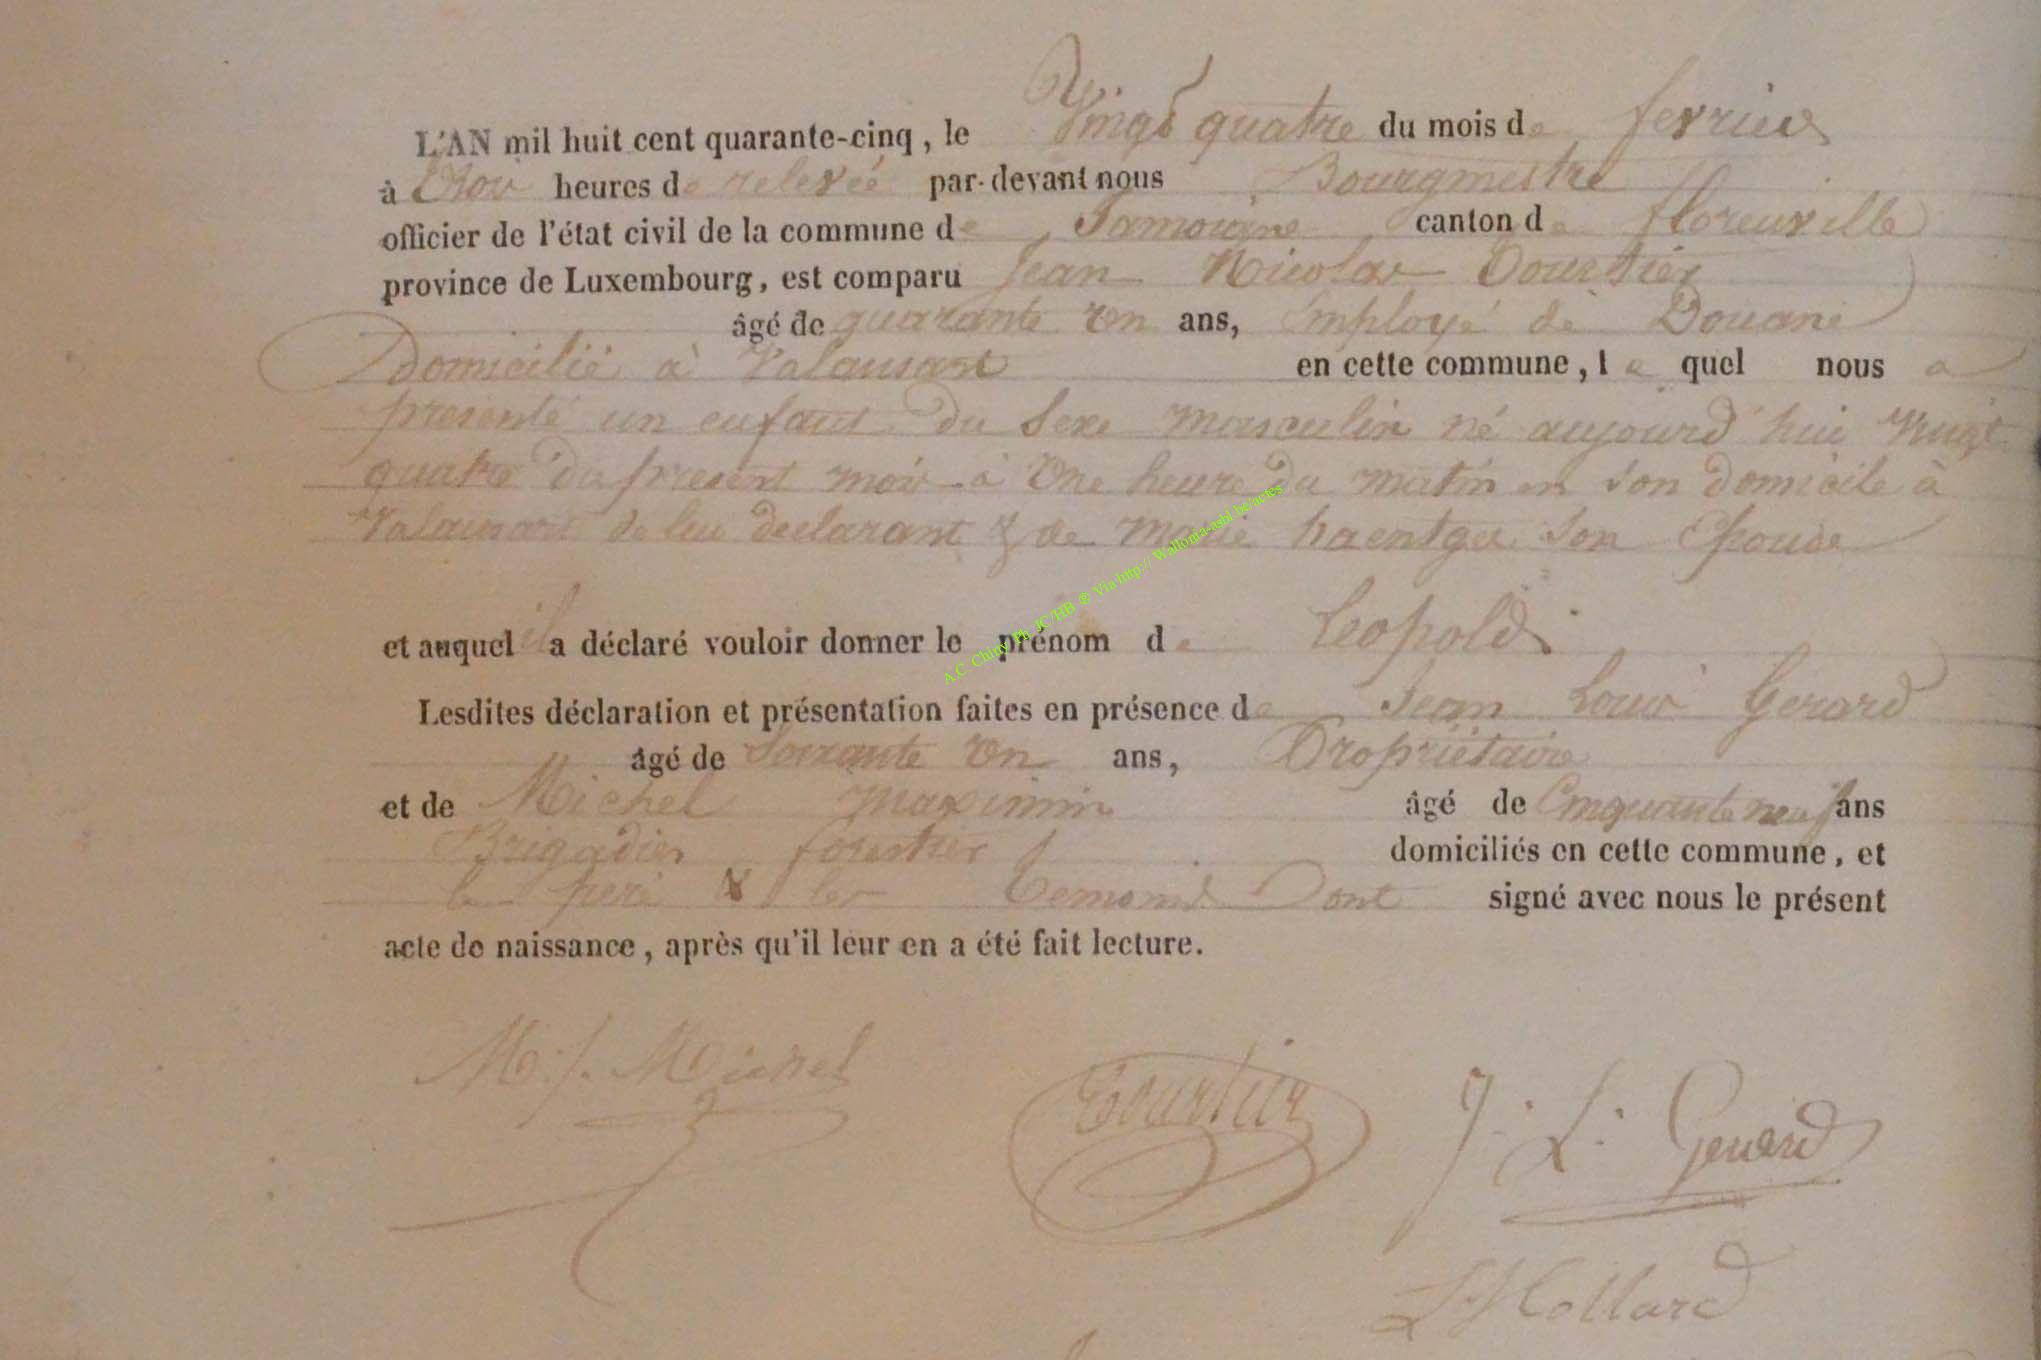 L'AN mil huit cent quarante-cinq, le Vingt quatre du mois de fevrier
à trois heures de relevée par-devant nous Bourgmestre
officier de l'état civil de la commune de Jamoigne canton de florenville
province de Luxembourg, est comparu Jean Nicolas Tourtier
âgé de quarante un ans, Employé de Douane
Domicilié à Valansart en cette commune, le quel nous a
presenté un enfant du Sexe masculin né aujourd'hui Vingt
quatre du present mois à Une heure du matin en son domicile à
Valansart de lui declarant & de Marie son Epouse
et auquel il a déclaré vouloir donner le prénom de Leopold
Lesdites déclaration et présentation faites en présence de Jean Louis Gerard
âgé de Soixante Un ans, Propriétaire
et de Michel Maximin âgé de Cinquante neuf ans
Brigadier forestier domiciliés en cette commune, et
le pere & les temoins Dont signé avec nous le présent
acte de naissance, après qu'il leur en a été fait lecture.
M. J. Michel Tourtier J. L. Gerard
Collard
A.C. Chiny Ph. JC/HB ® Via http://Wallonia-asbl.be/actes